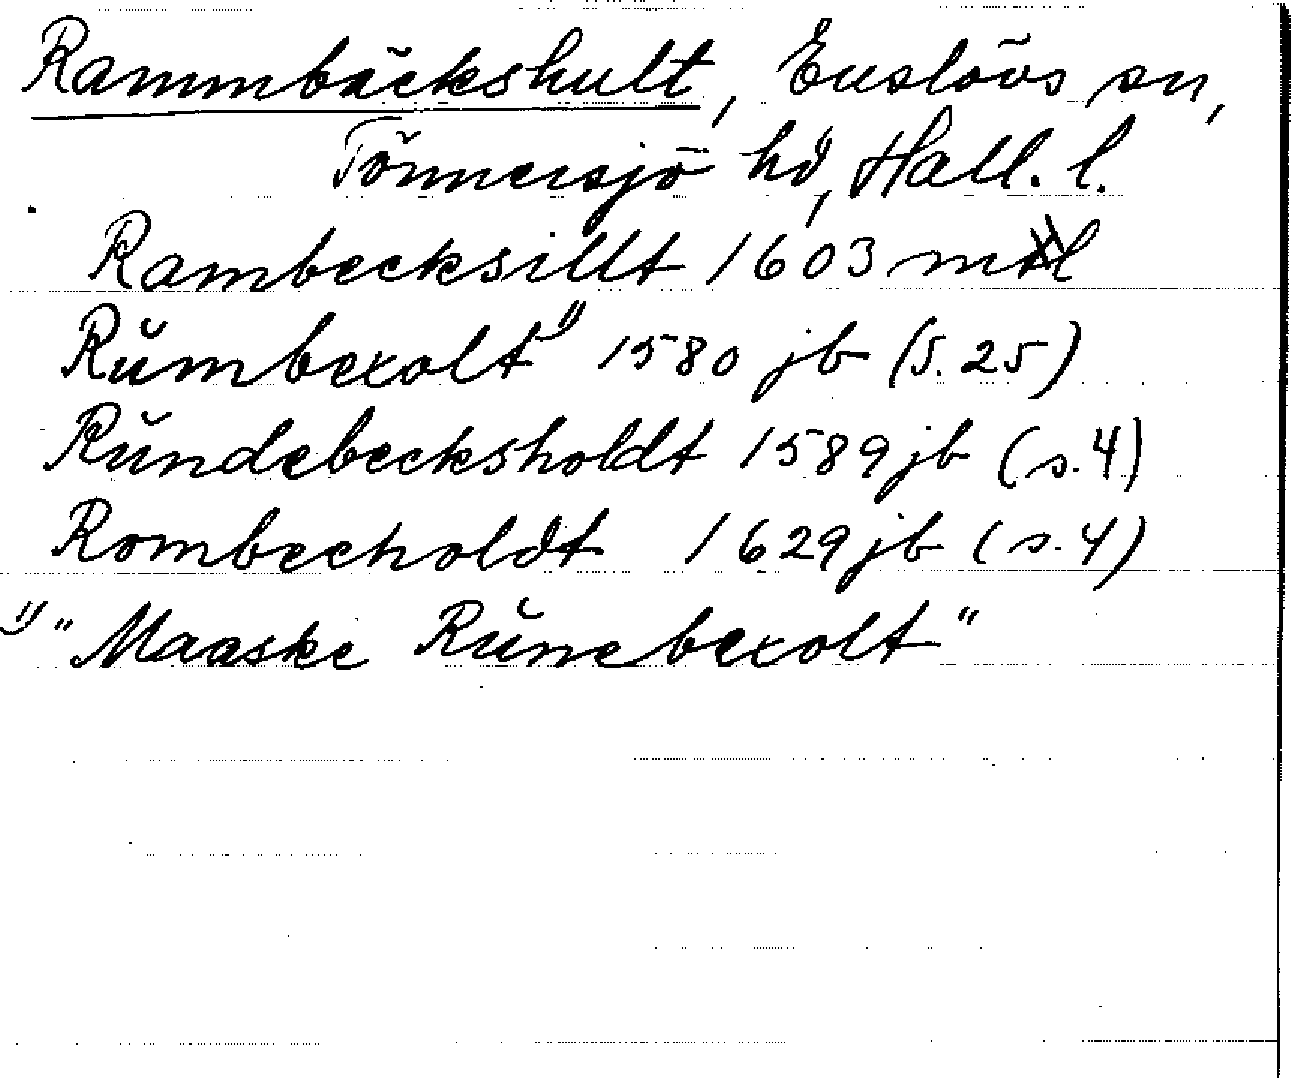 Rammbäckshult, Euslövs sn,
Tönnersjö hd, Hall. l.
Rambecksillt 1603 mtl
Rŭmbexolt¹⁾ 1580 jb (S. 25)
Rŭndebecksholdt 1589 jb (s. 4)
Rombecholdt 1629 jb (s. 4)
¹⁾ "Maaske Rŭnebexolt"